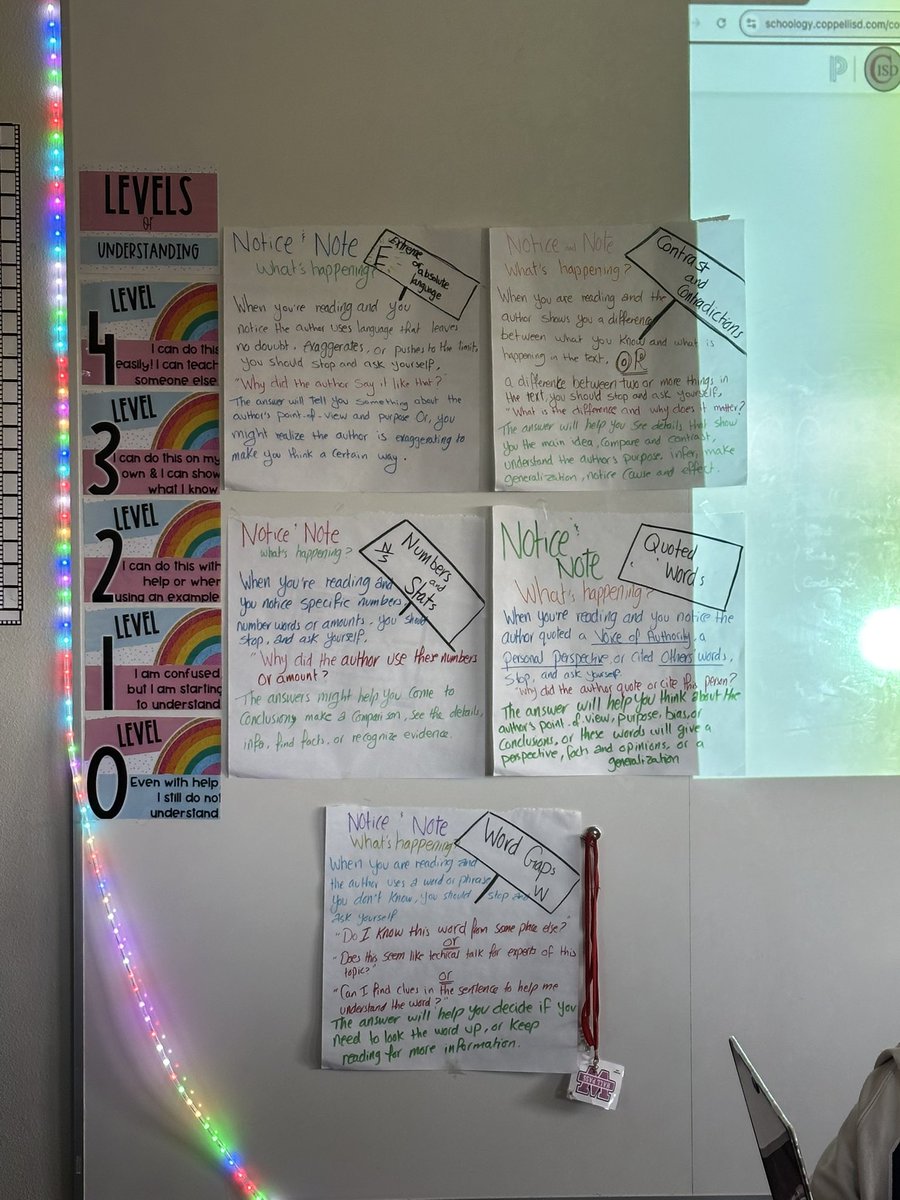 schoology.coppellisd.com/co
P
CISD
LEVELS
OF
UNDERSTANDING
LEVEL
4
I can do this
easily! I can teach
someone else
LEVEL
3
I can do this on my
own & I can show
what I know
LEVEL
2
I can do this with
help or when
using an example
LEVEL
1
I am confused
but I am starting
to understand
LEVEL
0
Even with help
I still do not
understand
Notice & Note
What's happening?
E
Extreme
or absolute
language
When you're reading and you
notice the author uses language that leaves
no doubt, exaggerates, or pushes to the limit,
you should stop and ask yourself,
"Why did the author say it like that?
The answer will tell you something about the
author's point-of-view and purpose Or, you
might realize the author is exaggerating to
make you think a certain way.
Notice and Note
What's happening?
Contrast
and
Contradictions
When you are reading and the
author shows you a difference
between what you know and what is
happening in the text,
OR
a difference between two or more things in
the text, you should stop and ask yourself,
"What is the difference and why does it matter?
The answer will help you see details that show
you the main idea, compare and contrast,
understand the author's purpose, infer, make
generalization, notice cause and effect.
Notice & Note
what's happening?
N/S
Numbers
and
Stats
When you're reading and
you notice specific numbers,
number words or amounts, you should
stop, and ask yourself,
"Why did the author use these numbers
or amount?
The answers might help you come to
conclusions, make a comparison, see the details,
infer, find facts, or recognize evidence.
Notice &
Note
What's happening?
Quoted
Words
When you're reading and you notice the
author quoted a Voice of Authority, a
personal perspective, or cited Others words,
stop, and ask yourself
"Why did the author quote or cite this person?
The answer will help you think about the
author's point-of-view, purpose, bias, or
conclusions, or these words will give a
perspective, facts and opinions, or a
generalization
Notice & Note
What's happening?
Word Gaps
W
When you are reading and
the author uses a word or phrase
you don't know, you should stop and
ask yourself
"Do I know this word from some place else?"
or
"Does this seem like techical talk for experts of this
topic?"
or
"Can I find clues in the sentence to help me
understand the word?"
The answer will help you decide if you
need to look the word up, or keep
reading for more information.